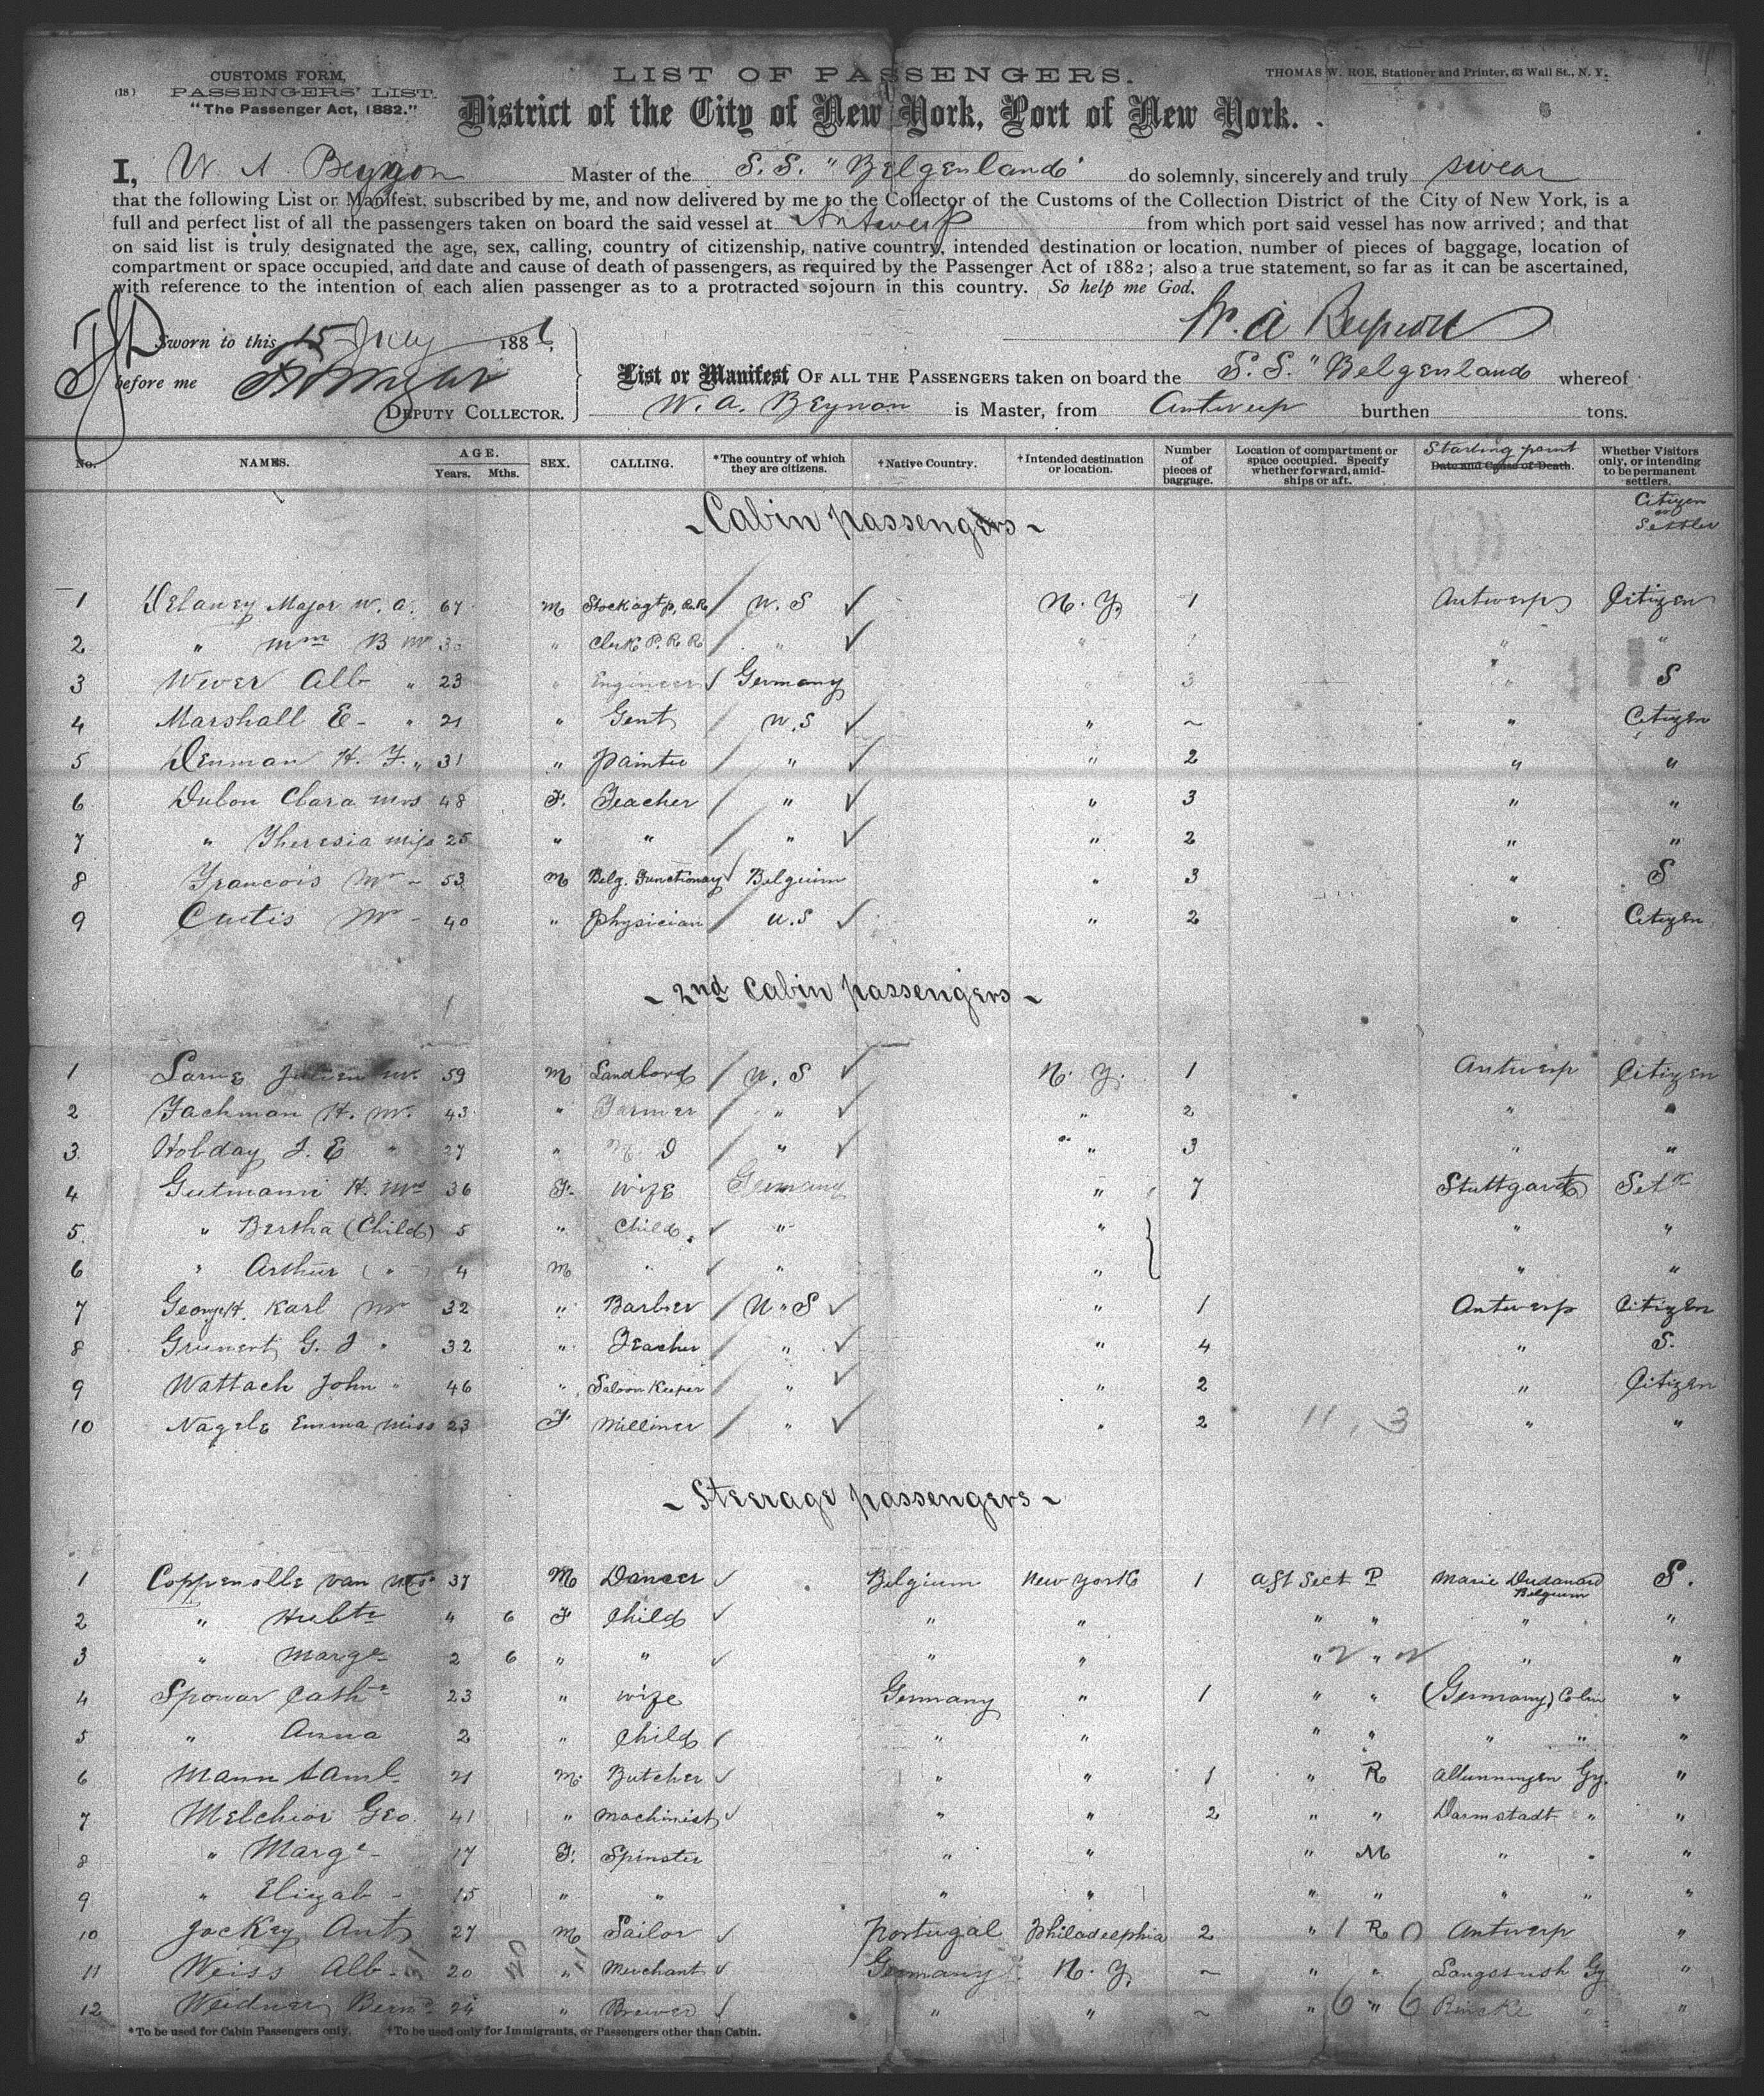 CUSTOMS FORM,
(18) PASSENGERS' LIST.
"The Passenger Act, 1882."
LIST OF PASSENGERS.
THOMAS W. ROE, Stationer and Printer, 63 Wall St., N. Y.
District of the City of New York, Port of New York.
I, W. A. Beynon Master of the S. S. "Belgenland" do solemnly, sincerely and truly swear
that the following List or Manifest, subscribed by me, and now delivered by me to the Collector of the Customs of the Collection District of the City of New York, is a
full and perfect list of all the passengers taken on board the said vessel at Antwerp from which port said vessel has now arrived; and that
on said list is truly designated the age, sex, calling, country of citizenship, native country, intended destination or location, number of pieces of baggage, location of
compartment or space occupied, and date and cause of death of passengers, as required by the Passenger Act of 1882; also a true statement, so far as it can be ascertained,
with reference to the intention of each alien passenger as to a protracted sojourn in this country. So help me God.
W. A. Beynon
Sworn to this 15 July 188
before me
DEPUTY COLLECTOR.
List or Manifest OF ALL THE PASSENGERS taken on board the S. S. "Belgenland whereof
W. A. Beynon is Master, from Antwerp burthen tons.
No. NAMES. AGE. Years. Mths. SEX. CALLING. *The country of which they are citizens. †Native Country. †Intended destination or location. Number of pieces of baggage. Location of compartment or space occupied. Specify whether forward, amidships or aft. Starting point Date and Cause of Death. Whether Visitors only, or intending to be permanent settlers.
Citizen or Settler
- Cabin passengers -
1 Delaney Major W. A. 67 M Stock agt p. R.R U. S N. Y. 1 Antwerp Citizen
2 " Wm B Mr " Clerk P. R R " " " "
3 Wever Alb " 23 " Engineer Germany " 3 " S
4 Marshall E - " 21 " Gent U. S " ~ " Citizen
5 Denman H. F. " 31 " Painter " " 2 " "
6 Dulon Clara Mrs 48 F. Teacher " " 3 " "
7 " Theresia Miss 25 " " " " 2 " "
8 Francois Mr - 53 M Belg. Functionary Belgium " 3 " S
9 Curtis Mr - 40 " Physician U.S " 2 " Citizen
- 2nd Cabin passengers -
1 Mr. 59 M Landlord U. S N. Y. 1 Antwerp Citizen
2 Fachman H. Mr. 43 " Farmer " " 2 " "
3 Holday J. E " 27 " M. D " " 3 " "
4 Gutmann H. Mrs 36 F. Wife Germany " 7 Stuttgart Setlr
5 " Bertha (Child) 5 " Child " " " "
6 " Arthur ( " ) 4 M " " " " "
7 George H. Karl Mr 32 " Barber U. S " 1 Antwerp Citizen
8 Grunert G. J " 32 " Teacher " " 4 " S.
9 Wattach John " 46 " Saloon Keeper " " 2 " Citizen
10 Nagele Emma Miss 23 F Milliner " " 2 11 , 3 " "
- Steerage passengers -
1 Coppenolle van 37 M Dancer Belgium New York 1 Aft Sect P Marie Belgium S.
2 " 4 6 F Child " " " " " "
3 " Marge 2 6 " " " " " " " "
4 Spowar Cathe 23 " Wife Germany " 1 " " (Germany) Coln "
5 " Anna 2 " Child " " " " " " "
6 Mann Saml 21 M. Butcher " " 1 " R Gy. "
7 Melchior Geo. 41 " Machinist " " 2 " " Darmstadt " "
8 " Marge 17 F. Spinster " " " M " " "
9 " Elizab - 15 " " " " " " " " "
10 Jockey Ant 27 M Sailor Portugal Philadelphia 2 " 1 R 0 Antwerp "
11 Weiss Alb - 20 " Merchant Germany N. Y. ~ " " Gy "
12 Weidner Bernd 24 " Brewer " " ~ " 6 " 6 " "
*To be used for Cabin Passengers only. †To be used only for Immigrants, or Passengers other than Cabin.